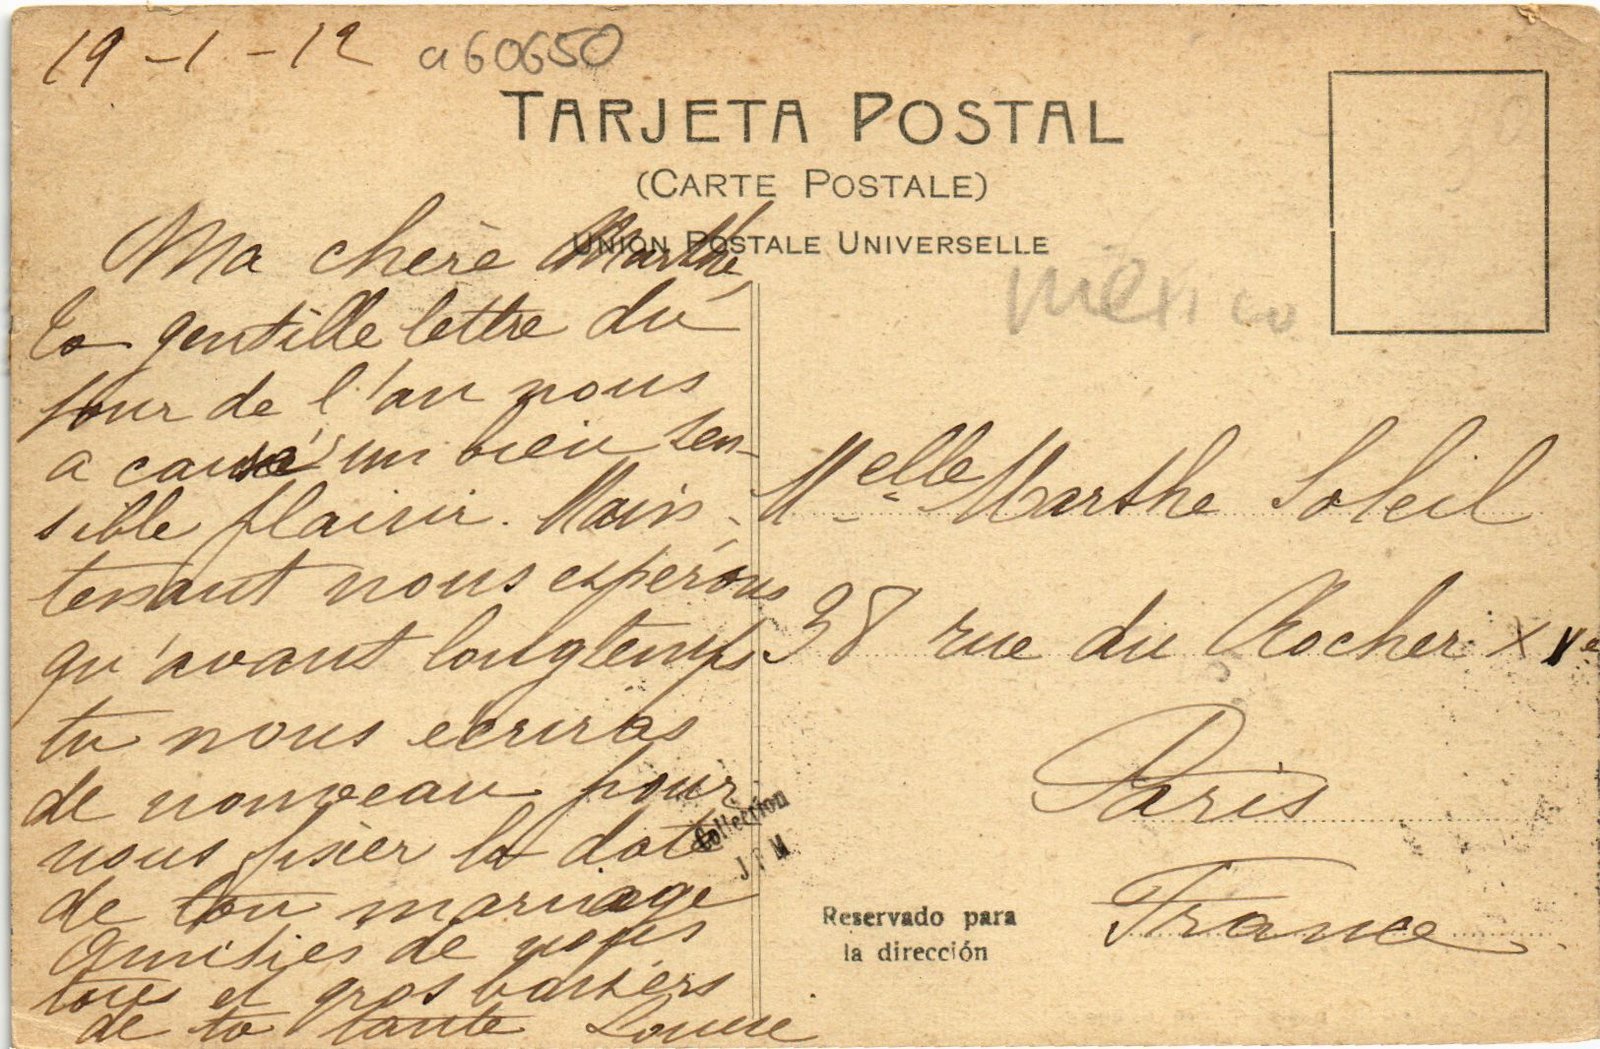 19-1-12
a60650
TARJETA POSTAL
(CARTE POSTALE)
UNION POSTALE UNIVERSELLE
México
Ma chère Marthe,
ta gentille lettre du
jour de l'an nous
a causé un bien sen-
sible plaisir. Main-
tenant nous espérons
qu'avant longtemps
tu nous ecriras
de nouveau pour
nous fixer la date
de ton mariage
Amitiés de nous
tous et gros baisers
de ta tante Louise
Melle Marthe Soleil
38 rue du Rocher XVe
Paris
France
Collection
J F M
Reservado para
la dirección